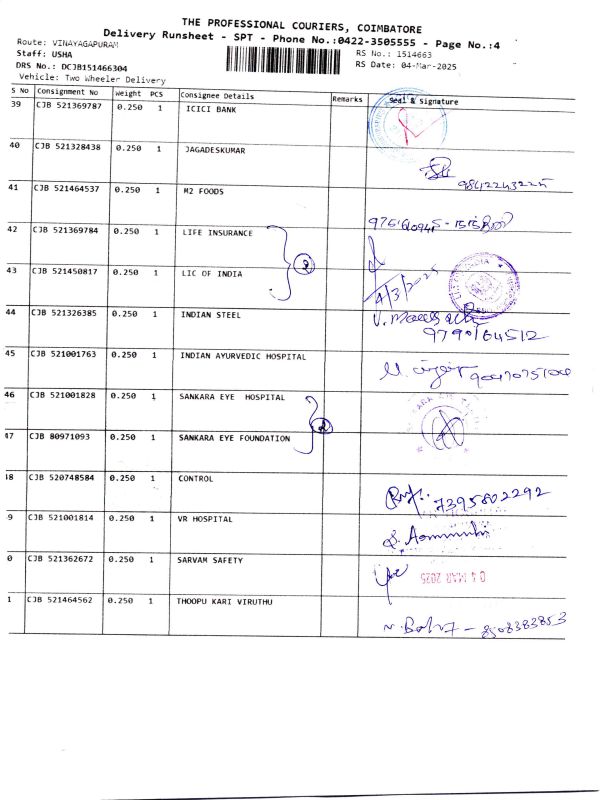 THE PROFESSIONAL COURIERS, COIMBATORE
Delivery Runsheet - SPT - Phone No.:0422-3505555 - Page No.:4
Route: VINAYAGAPURAM
RS No.: 1514663
Staff: USHA
RS Date: 04-Mar-2025
DRS No.: DCJB151466304
Vehicle: Two Wheeler Delivery
S No Consignment No Weight PCS Consignee Details Remarks Seal & Signature
39 CJB 521369787 0.250 1 ICICI BANK
40 CJB 521328438 0.250 1 JAGADESKUMAR
9842243225
41 CJB 521464537 0.250 1 M2 FOODS
42 CJB 521369784 0.250 1 LIFE INSURANCE
2
43 CJB 521450817 0.250 1 LIC OF INDIA
4/3/2025
44 CJB 521326385 0.250 1 INDIAN STEEL
9790164512
45 CJB 521001763 0.250 1 INDIAN AYURVEDIC HOSPITAL
46 CJB 521001828 0.250 1 SANKARA EYE HOSPITAL
2
47 CJB 80971093 0.250 1 SANKARA EYE FOUNDATION
48 CJB 520748584 0.250 1 CONTROL
7395802292
9 CJB 521001814 0.250 1 VR HOSPITAL
0 CJB 521362672 0.250 1 SARVAM SAFETY
04 MAR 2025
1 CJB 521464562 0.250 1 THOOPU KARI VIRUTHU
8508383853